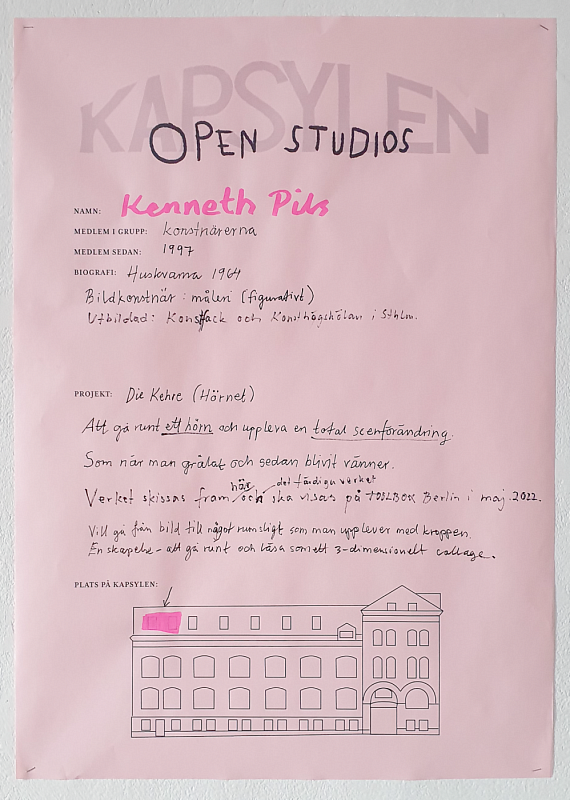 KAPSYLEN
OPEN STUDIOS
NAMN: Kenneth Pils
MEDLEM I GRUPP: Konstnärerna
MEDLEM SEDAN: 1997
BIOGRAFI: Huskvarna 1964
Bildkonstnär: måleri (figurativt)
Utbildad: Konstfack och Konsthögskolan i Sthlm.
PROJEKT: Die Kehre (Hörnet)
Att gå runt ett hörn och uppleva en total scenförändring.
Som när man grälat och sedan blivit vänner.
här det färdiga verket
Verket skissas fram och ska visas på TOOLBOX Berlin i maj. 2022.
Vill gå från bild till något rumsligt som man upplever med kroppen.
En skapelse - att gå runt och läsa som ett 3-dimensionelt collage.
PLATS PÅ KAPSYLEN: